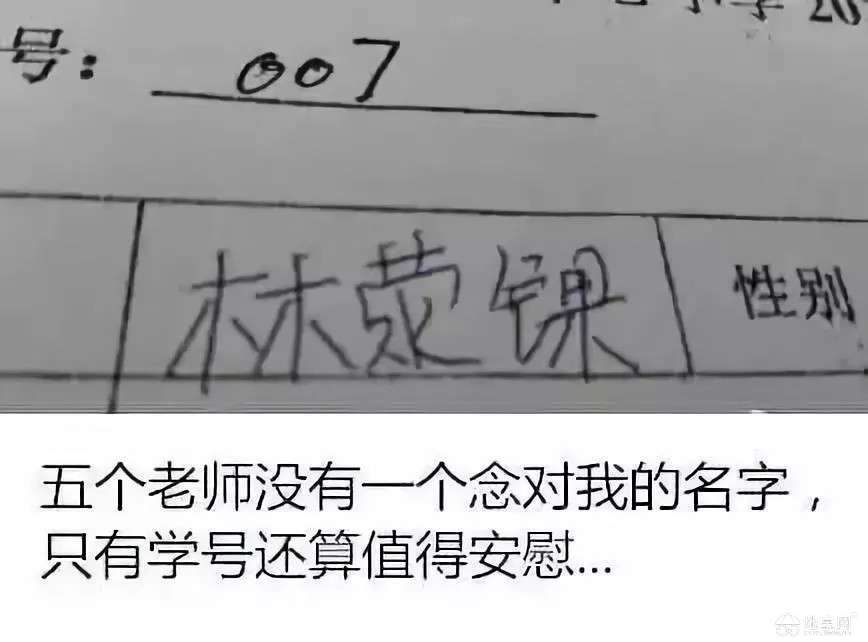 20
号：007
林荥锞
性别
五个老师没有一个念对我的名字，
只有学号还算值得安慰...